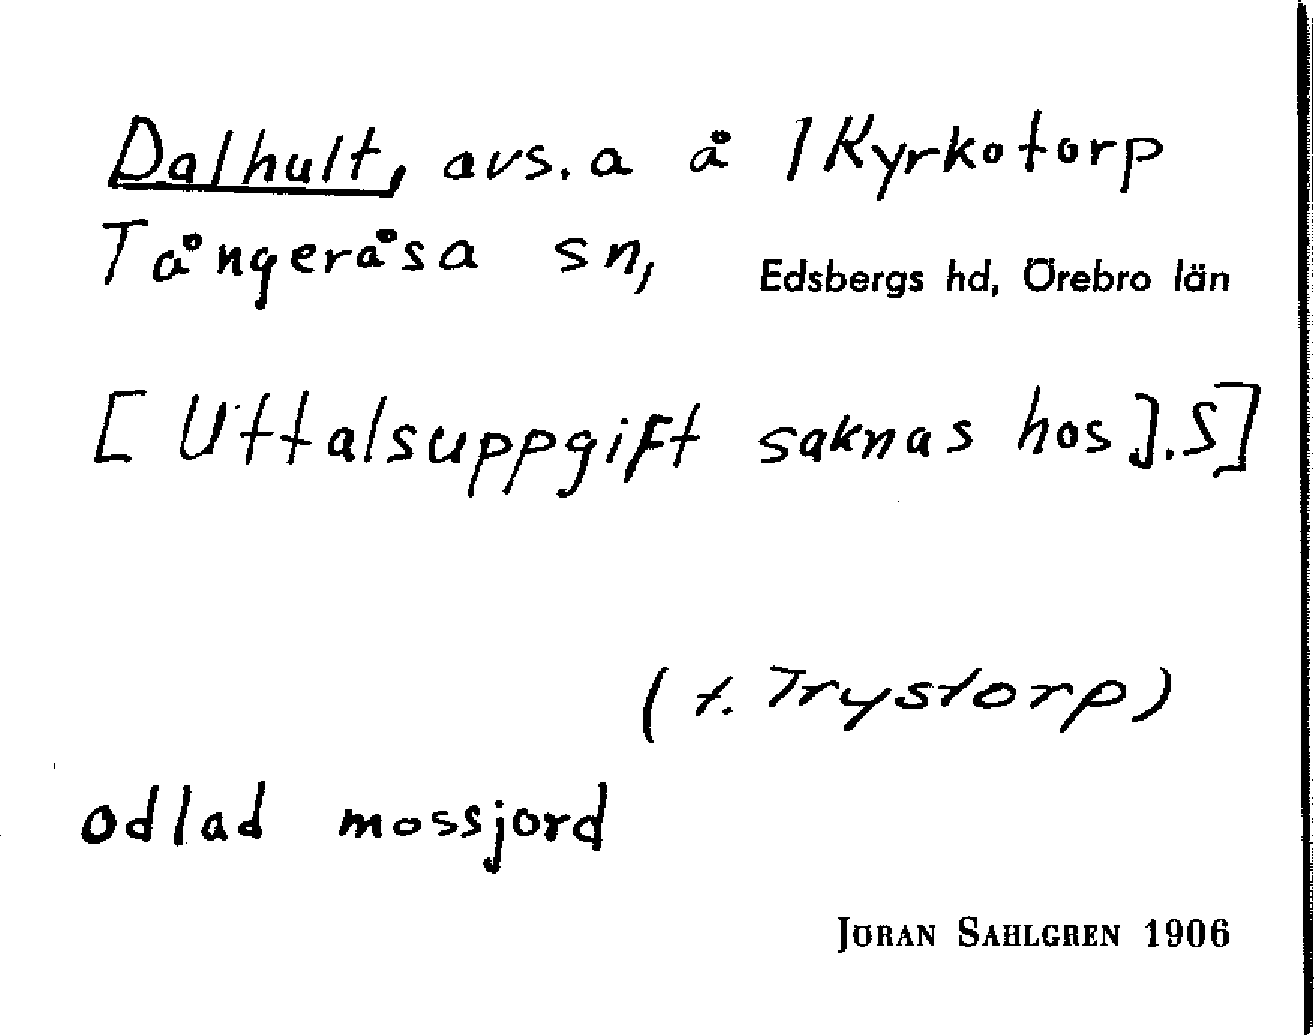 Dalhult, avs. a å 1 Kyrkotorp
Tångeråsa sn, Edsbergs hd, Örebro län
[Uttalsuppgift saknas hos J.S]
(t. Trystorp)
odlad mossjord
JÖRAN SAHLGREN 1906